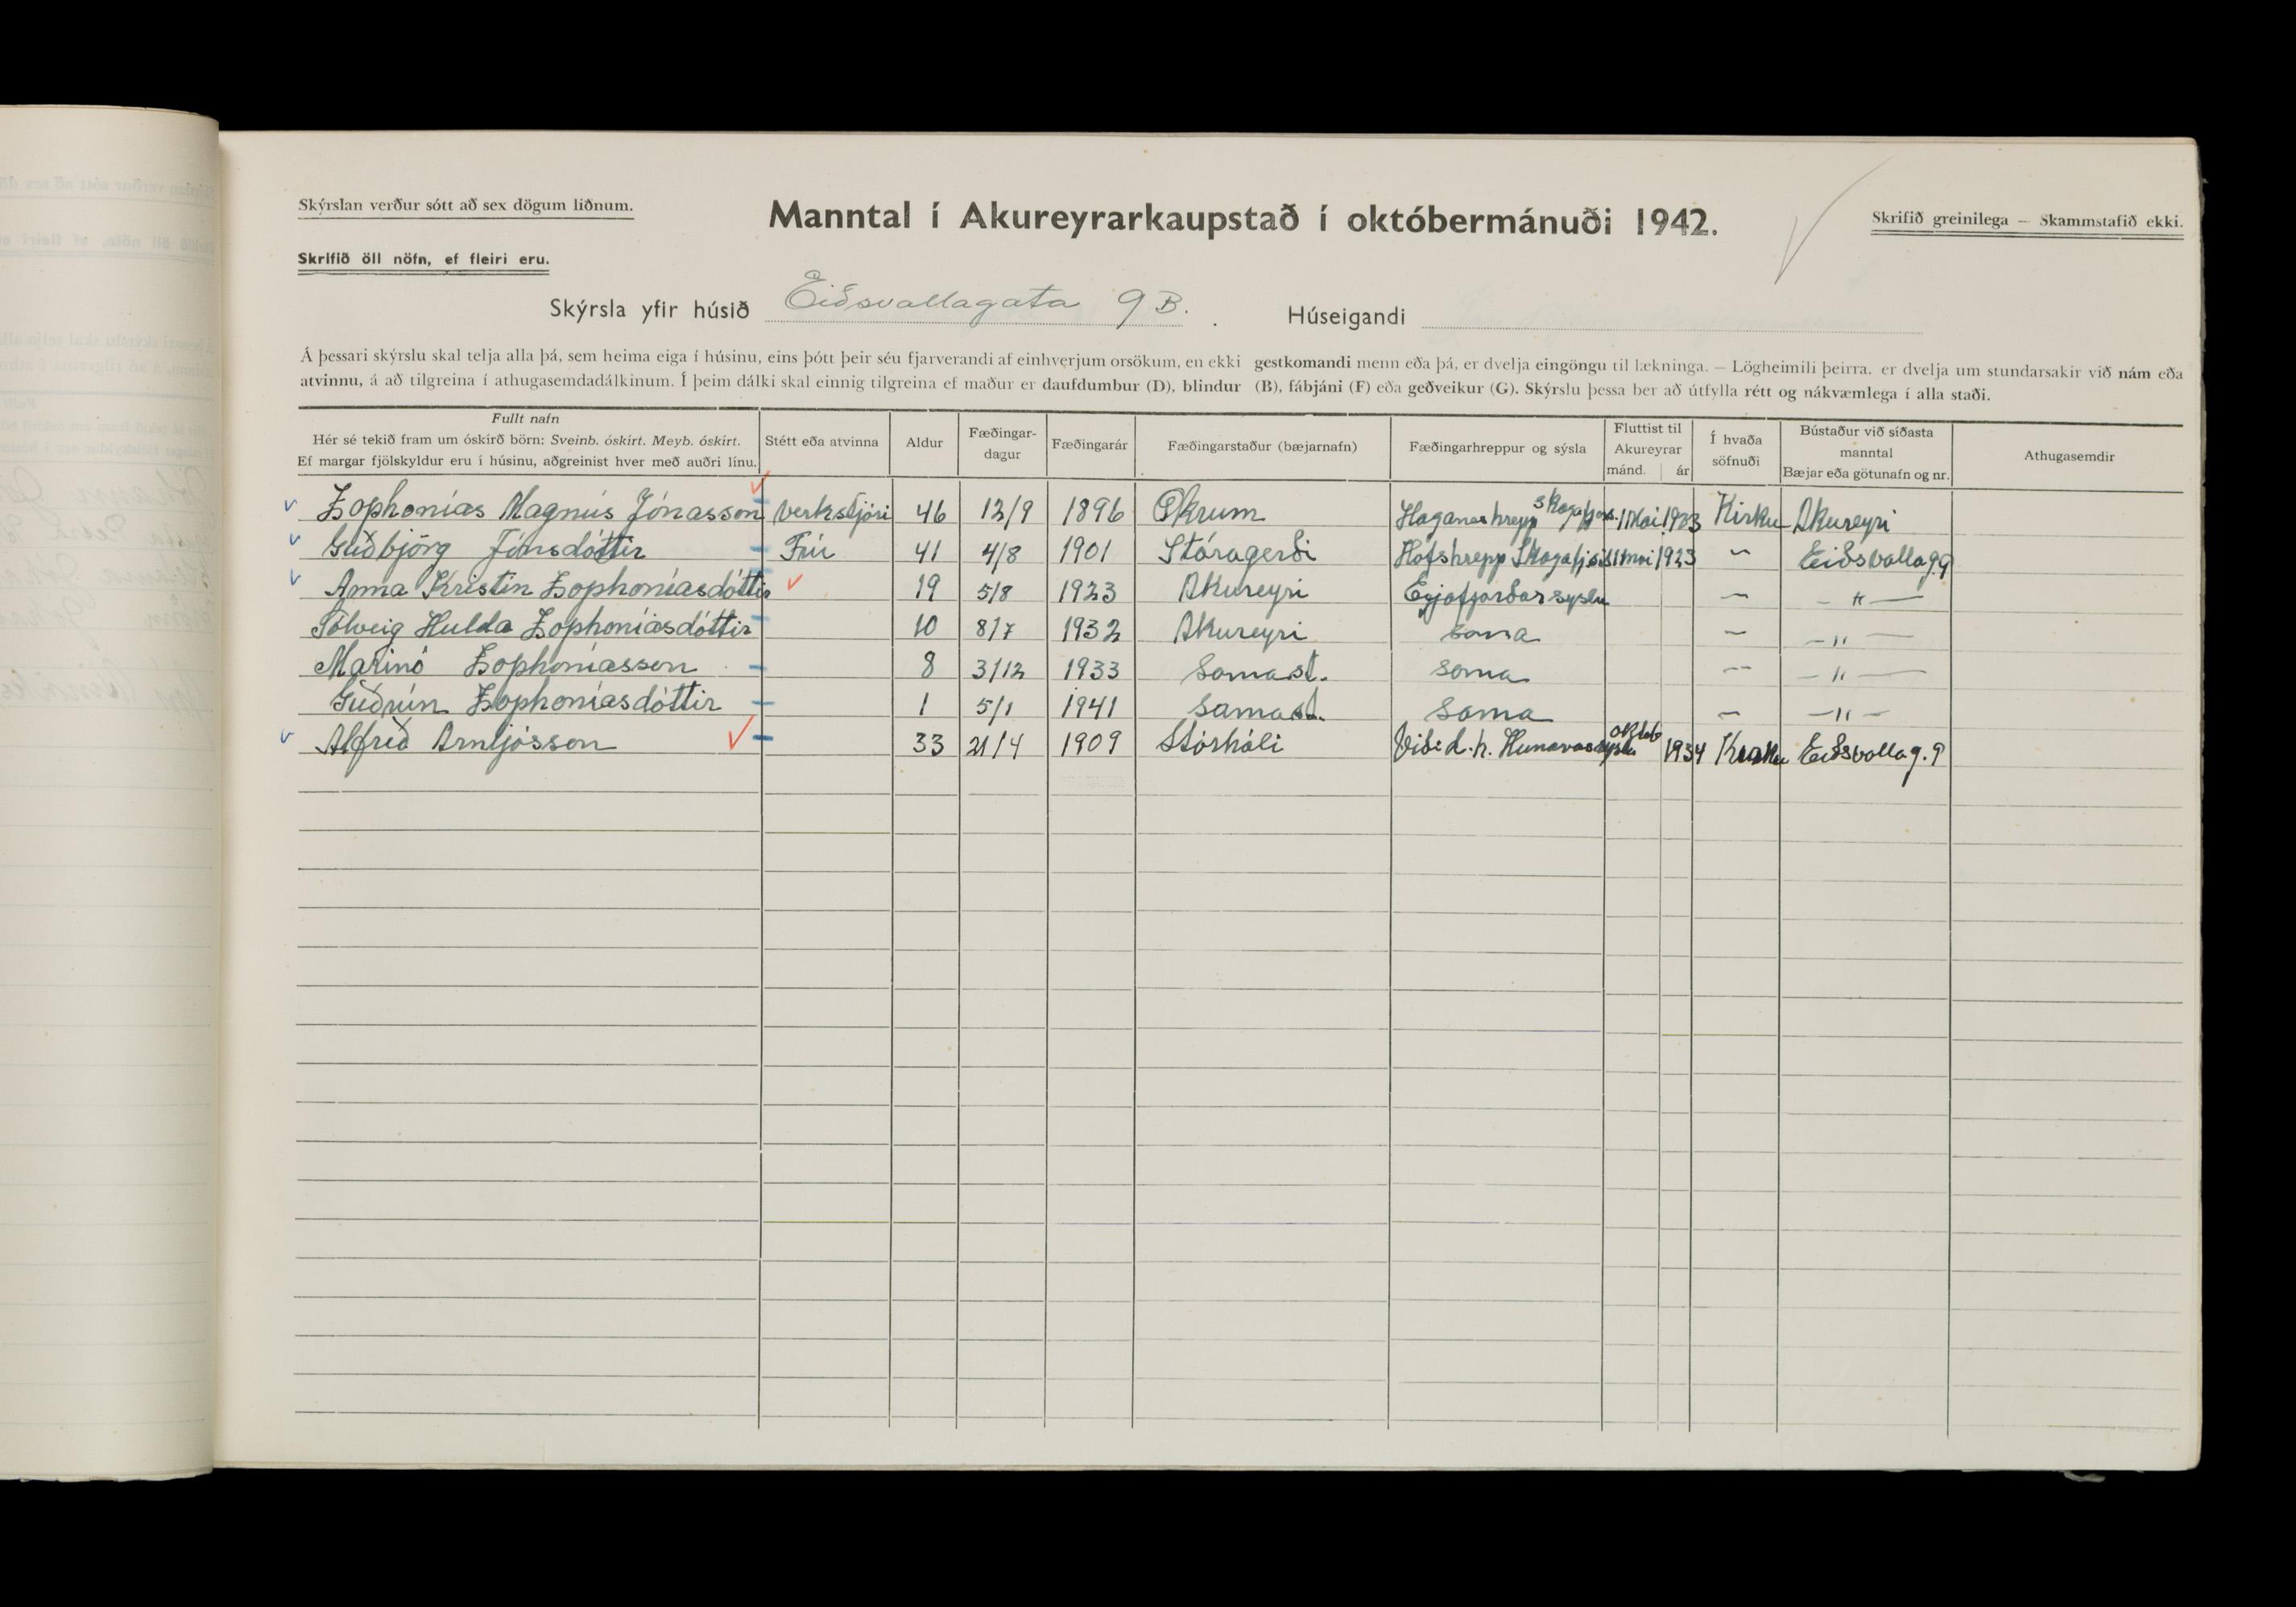 Skýrslan verður sótt að sex dögum liðnum.
Manntal í Akureyrarkaupstað í októbermánuði 1942.
Skrifið greinilega — Skammstafið ekki.
Skrifið öll nöfn, ef fleiri eru.
Skýrsla yfir húsið Eiðsvallagata 9 B. Húseigandi
Á þessari skýrslu skal telja alla þá, sem heima eiga í húsinu, eins þótt þeir séu fjarverandi af einhverjum orsökum, en ekki gestkomandi menn eða þá, er dvelja eingöngu til lækninga. — Lögheimili þeirra. er dvelja um stundarsakir við nám eða
atvinnu, á að tilgreina í athugasemdadálkinum. Í þeim dálki skal einnig tilgreina ef maður er daufdumbur (D), blindur (B), fábjáni (F) eða geðveikur (G). Skýrslu þessa ber að útfylla rétt og nákvæmlega í alla staði.
Fullt nafn
Hér sé tekið fram um óskírð börn: Sveinb. óskírt. Meyb. óskírt.
Ef margar fjölskyldur eru í húsinu, aðgreinist hver með auðri línu.
Stétt eða atvinna
Aldur
Fæðingar-
dagur
Fæðingarár
Fæðingarstaður (bæjarnafn)
Fæðingarhreppur og sýsla
Fluttist til
Akureyrar
mánd. ár
Í hvaða
söfnuði
Bústaður við síðasta
manntal
Bæjar eða götunafn og nr.
Athugasemdir
Zophonías Magnús Jónasson Verkstjóri 46 12/9 1896 Ökrum Haganeshrepp Skagafjs. 1 Mai 1923 Kirku Akureyri
Guðbjörg Jónsdóttir Frú 41 4/8 1901 Stóragerði Hofshrepp Skagafjós 11 mai 1923 〃 Eiðsvallag 9
Anna Kristín Zophoníasdóttir 19 5/8 1923 Akureyri Eyjafjarðarsyslu 〃 — 〃 —
Sólveig Hulda Zophoníasdóttir 10 8/7 1932 Akureyri sama 〃 — 〃 —
Marinó Zophoníasson 8 31/12 1933 Samast. sama 〃 — 〃 —
Guðrún Zophoníasdóttir 1 5/1 1941 Samast. Sama 〃 — 〃 —
Alfreð Arnljósson 33 21/4 1909 Stórhóli Viði d. h. Hunavassyslu oktob 1934 Kirku Eiðsvallag. 9